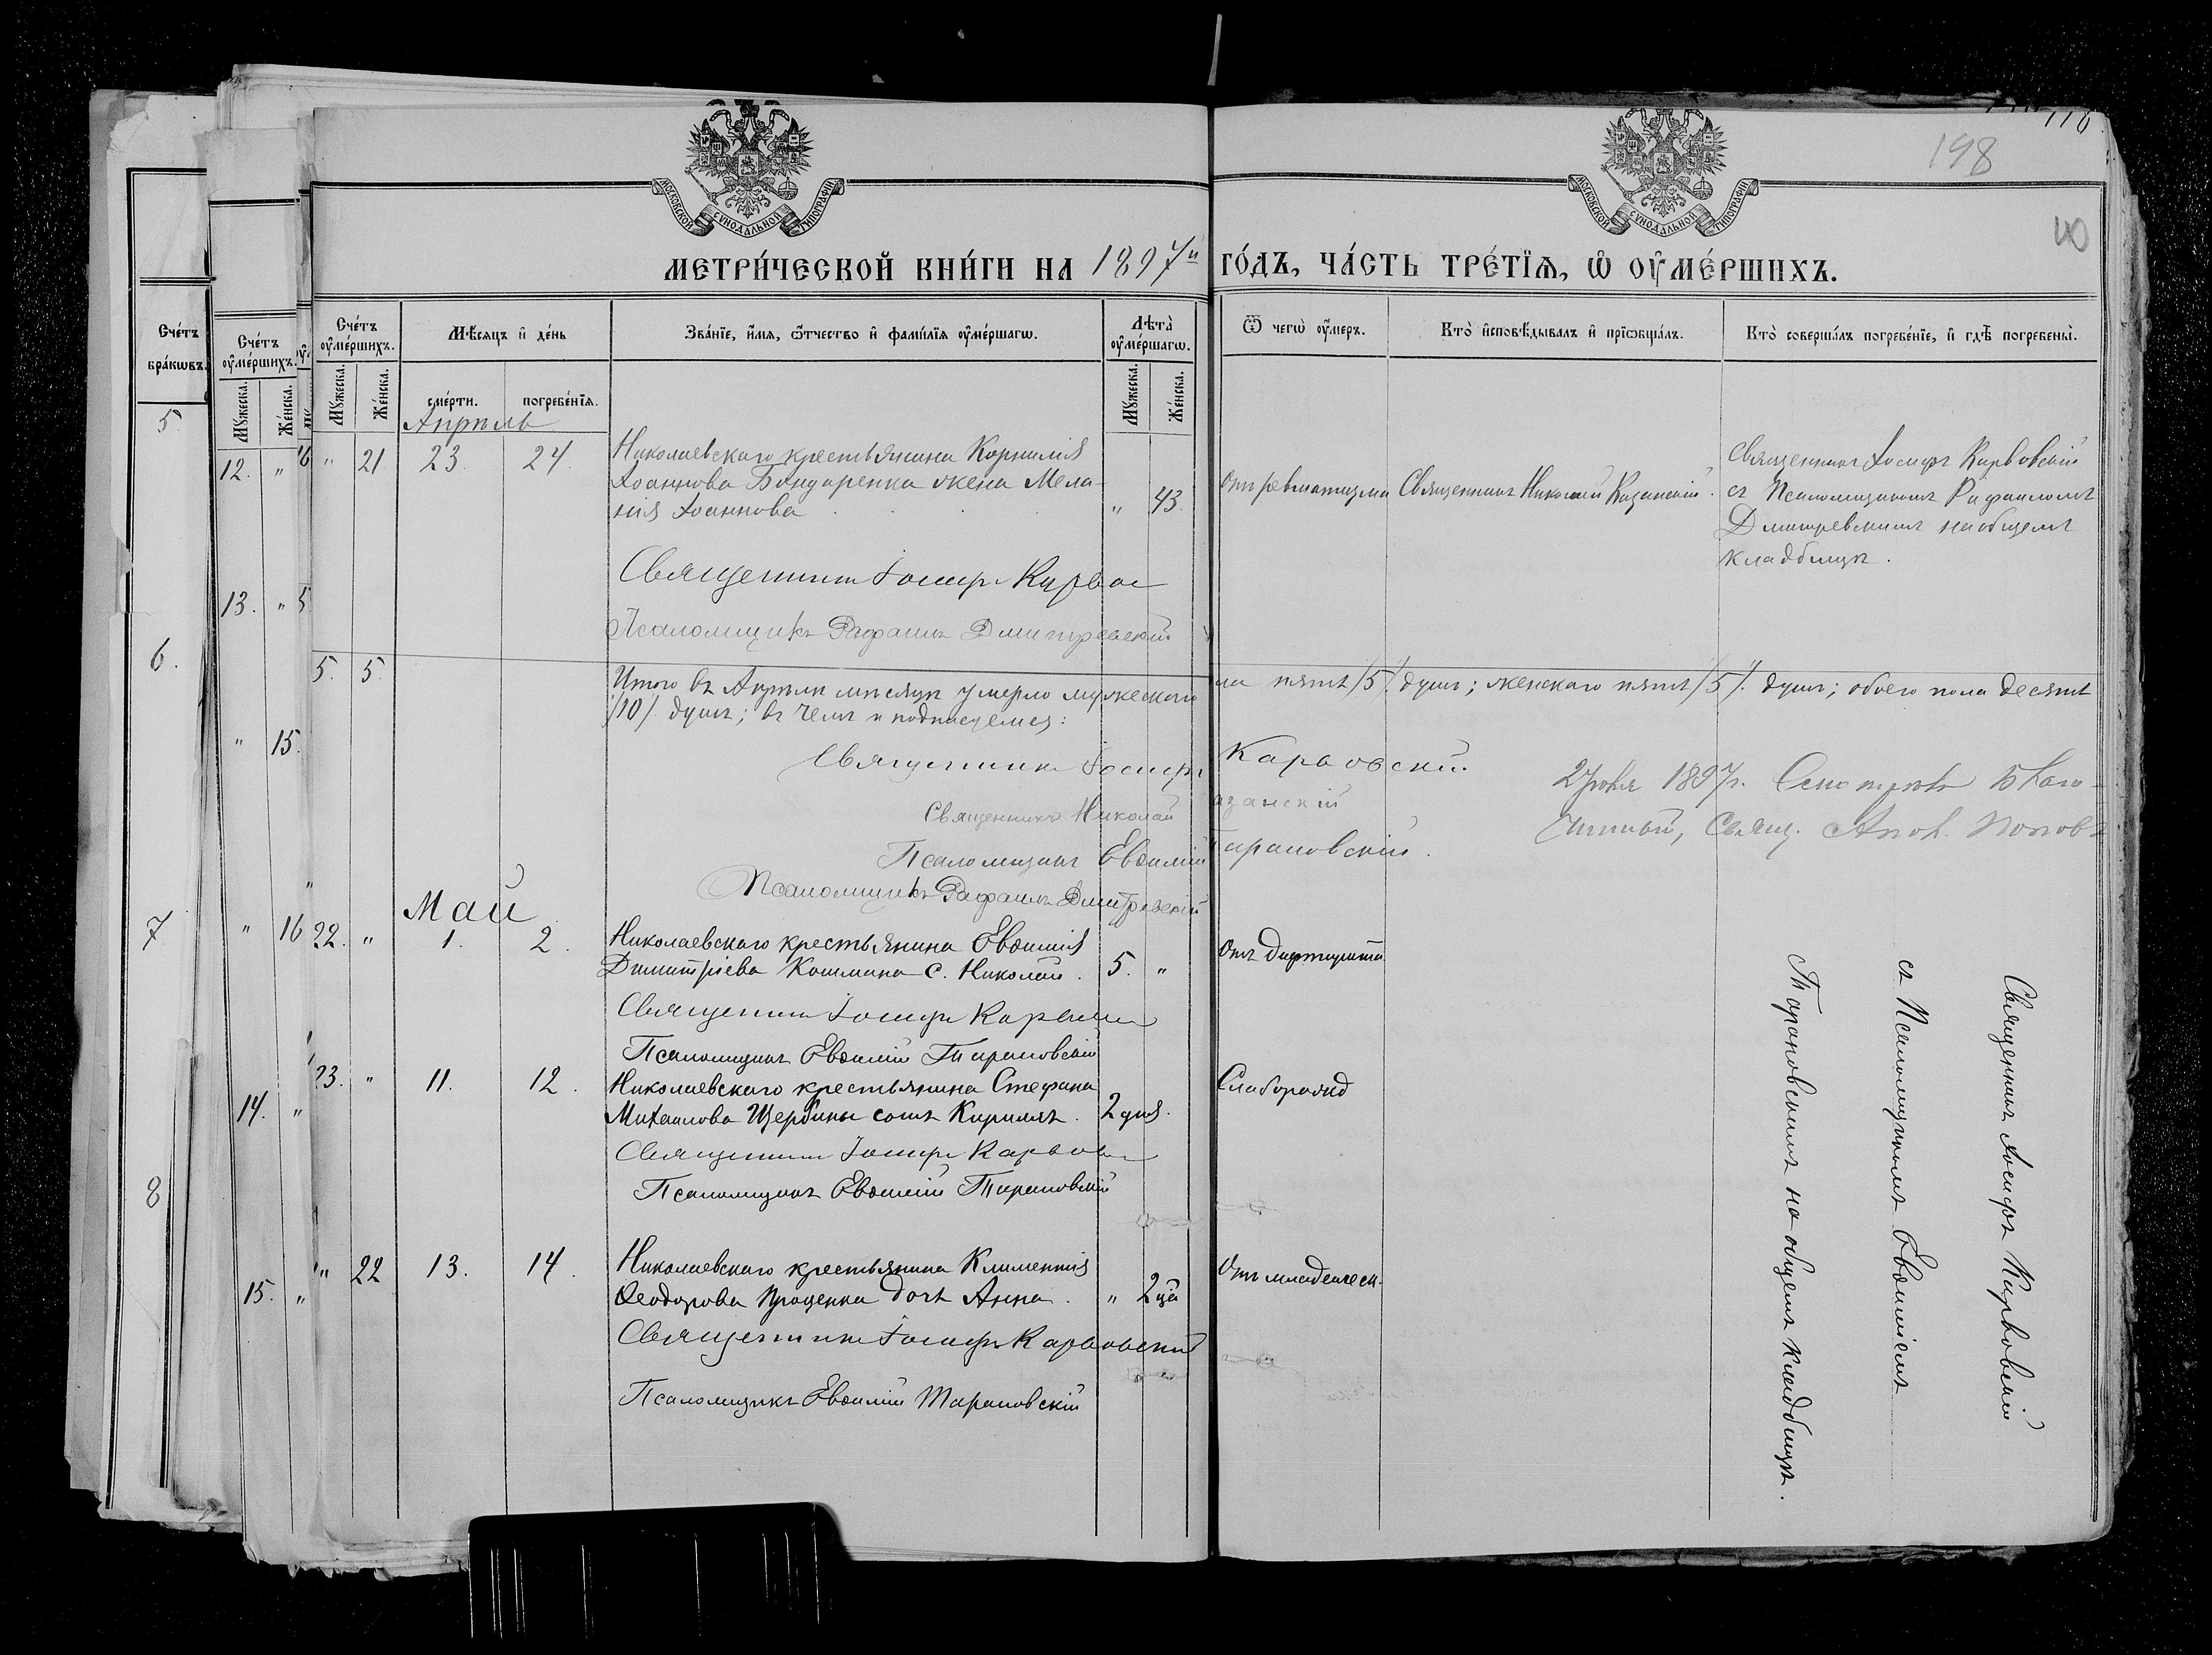 МОСКОВСКОЙ СѴНОДАЛЬНОЙ ТИПОГРАФІИ
МОСКОВСКОЙ СѴНОДАЛЬНОЙ ТИПОГРАФІИ
198
40
МЕТРИ́ЧЕСКОЙ КНИ́ГИ НА 1897й ГО́ДЪ, ЧА́СТЬ ТРЕ́ТІѦ, Ѡ ОУМЕ́РШИХЪ.
Сче́тъ бра́кѡвъ.
Сче́тъ оумершихъ.
Мꙋжеска.
Же́нска.
Сче́тъ оумершихъ.
Мꙋжеска.
Же́нска.
Мѣ́сѧцъ и де́нь
сме́рти.
погребе́нїѧ.
Зва́нїе, и́мѧ, ѻ҆́тчество и фами́лїѧ оуме́ршагѡ.
Лѣта̀ оуме́ршагѡ.
Мꙋжеска.
Же́нска.
Ѿ чегѡ̀ оу́меръ.
Кто̀ и҆сповѣ́дывалъ и прїѡбща́лъ.
Кто̀ соверша́лъ погребе́нїе, и гдѣ̀ погребены̀.
5
6.
7
8
12. "
13. "
" 15.
" 16
14. "
15. "
Апрѣль
" 21 23. 24.
Николаевскаго крестьянина Корнилія
Іоаннова Бондаренка жена Мела-
нія Іоаннова " 43.
Отъ ревматизма
Священникъ Николай Казанскій.
Священникъ Іосифъ Карвовскій
съ Псаломщикомъ Рафаиломъ
Дмитревскимъ на общемъ
кладбищѣ.
Священникъ Іосифъ
Псаломщикъ Рафаилъ Дмитревскій
5. 5.
Итого въ Апрѣлѣ мѣсяцѣ умерло мужескаго пола пять /5/ душъ; женскаго пять /5/. душъ; обоего пола десять
/10/ душъ; въ чемъ и подписуемся:
Священникъ Іосифъ Карвовскій.
Священникъ Николай Казанскій
Псаломщикъ Евѳимій Тарановскій.
Псаломщикъ Рафаилъ Дмитревскій
1897г.
Свящ. Попов
Май
22. " 1. 2.
Николаевскаго крестьянина Евѳимія
Димитріева с. Николай. 5. "
Отъ дифтерита
Священникъ Іосифъ
Псаломщикъ Евѳимій Тарановскій
23. " 11. 12.
Николаевскаго крестьянина Стефана
Михаилова Щербины сынъ Кириллъ. 2 дня.
Слаборожд
Священникъ Іосифъ
Псаломщикъ Евѳимій Тарановскій
" 22 13. 14.
Николаевскаго крестьянина Климентія
Ѳеодорова Проценка дочь Анна. "
Отъ младенческ.
Священникъ Іосифъ Карвовскій
Псаломщикъ Евѳимій Тарановскій
Священникъ Іосифъ Карвовскій
съ Псаломщикомъ Евѳиміемъ
Тарановскимъ на общемъ кладбищѣ.